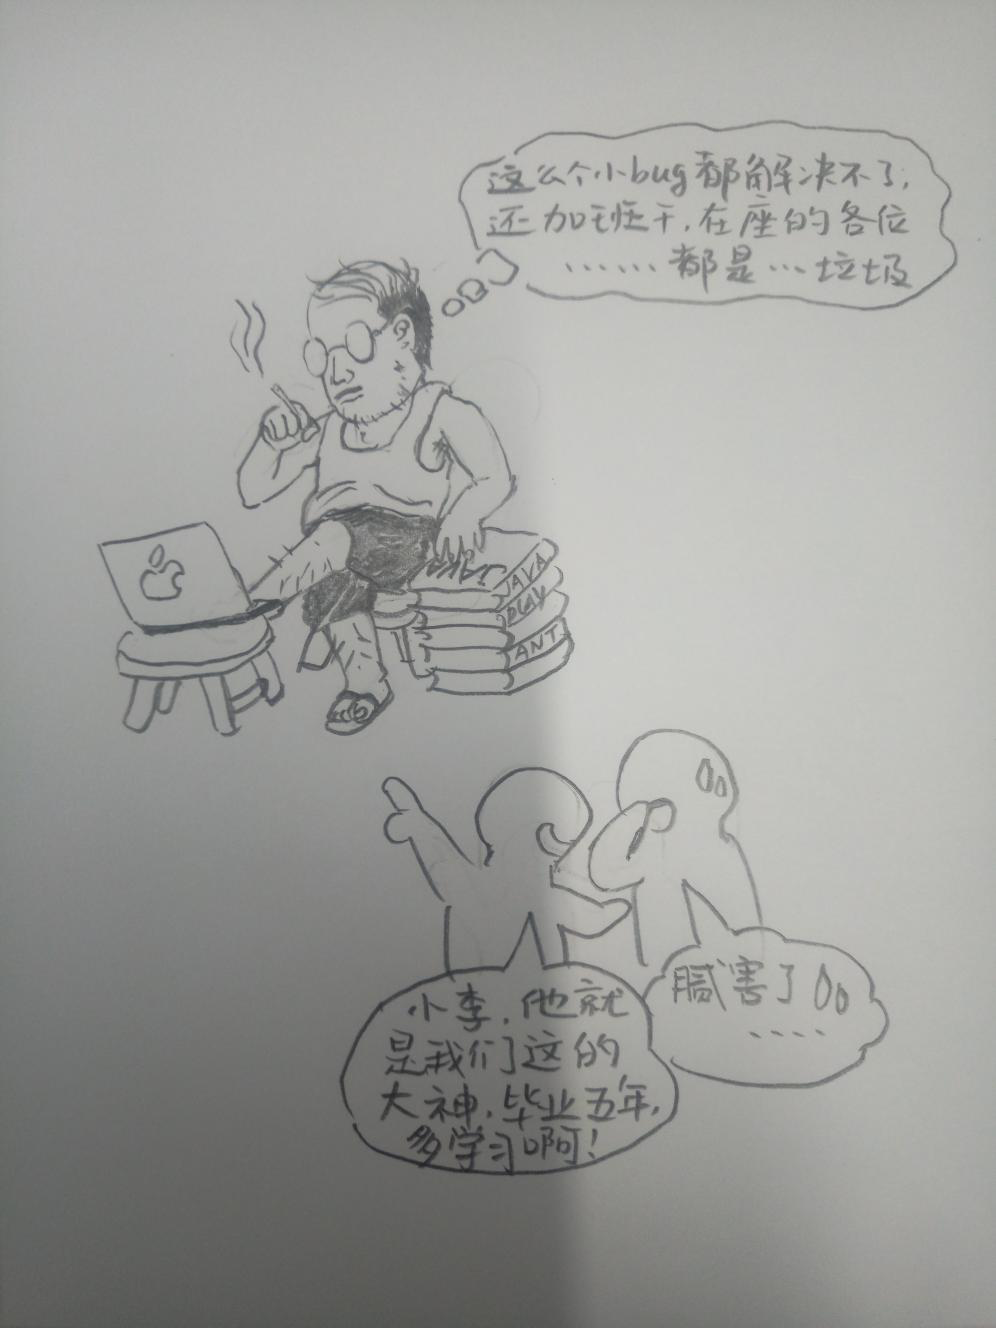 这么个小bug都解决不了,
还加班干,在座的各位
......都是...垃圾
JAVA
PLAY
ANT
小李,他就
是我们这的
大神,毕业五年,
多学习啊!
腻害了
....